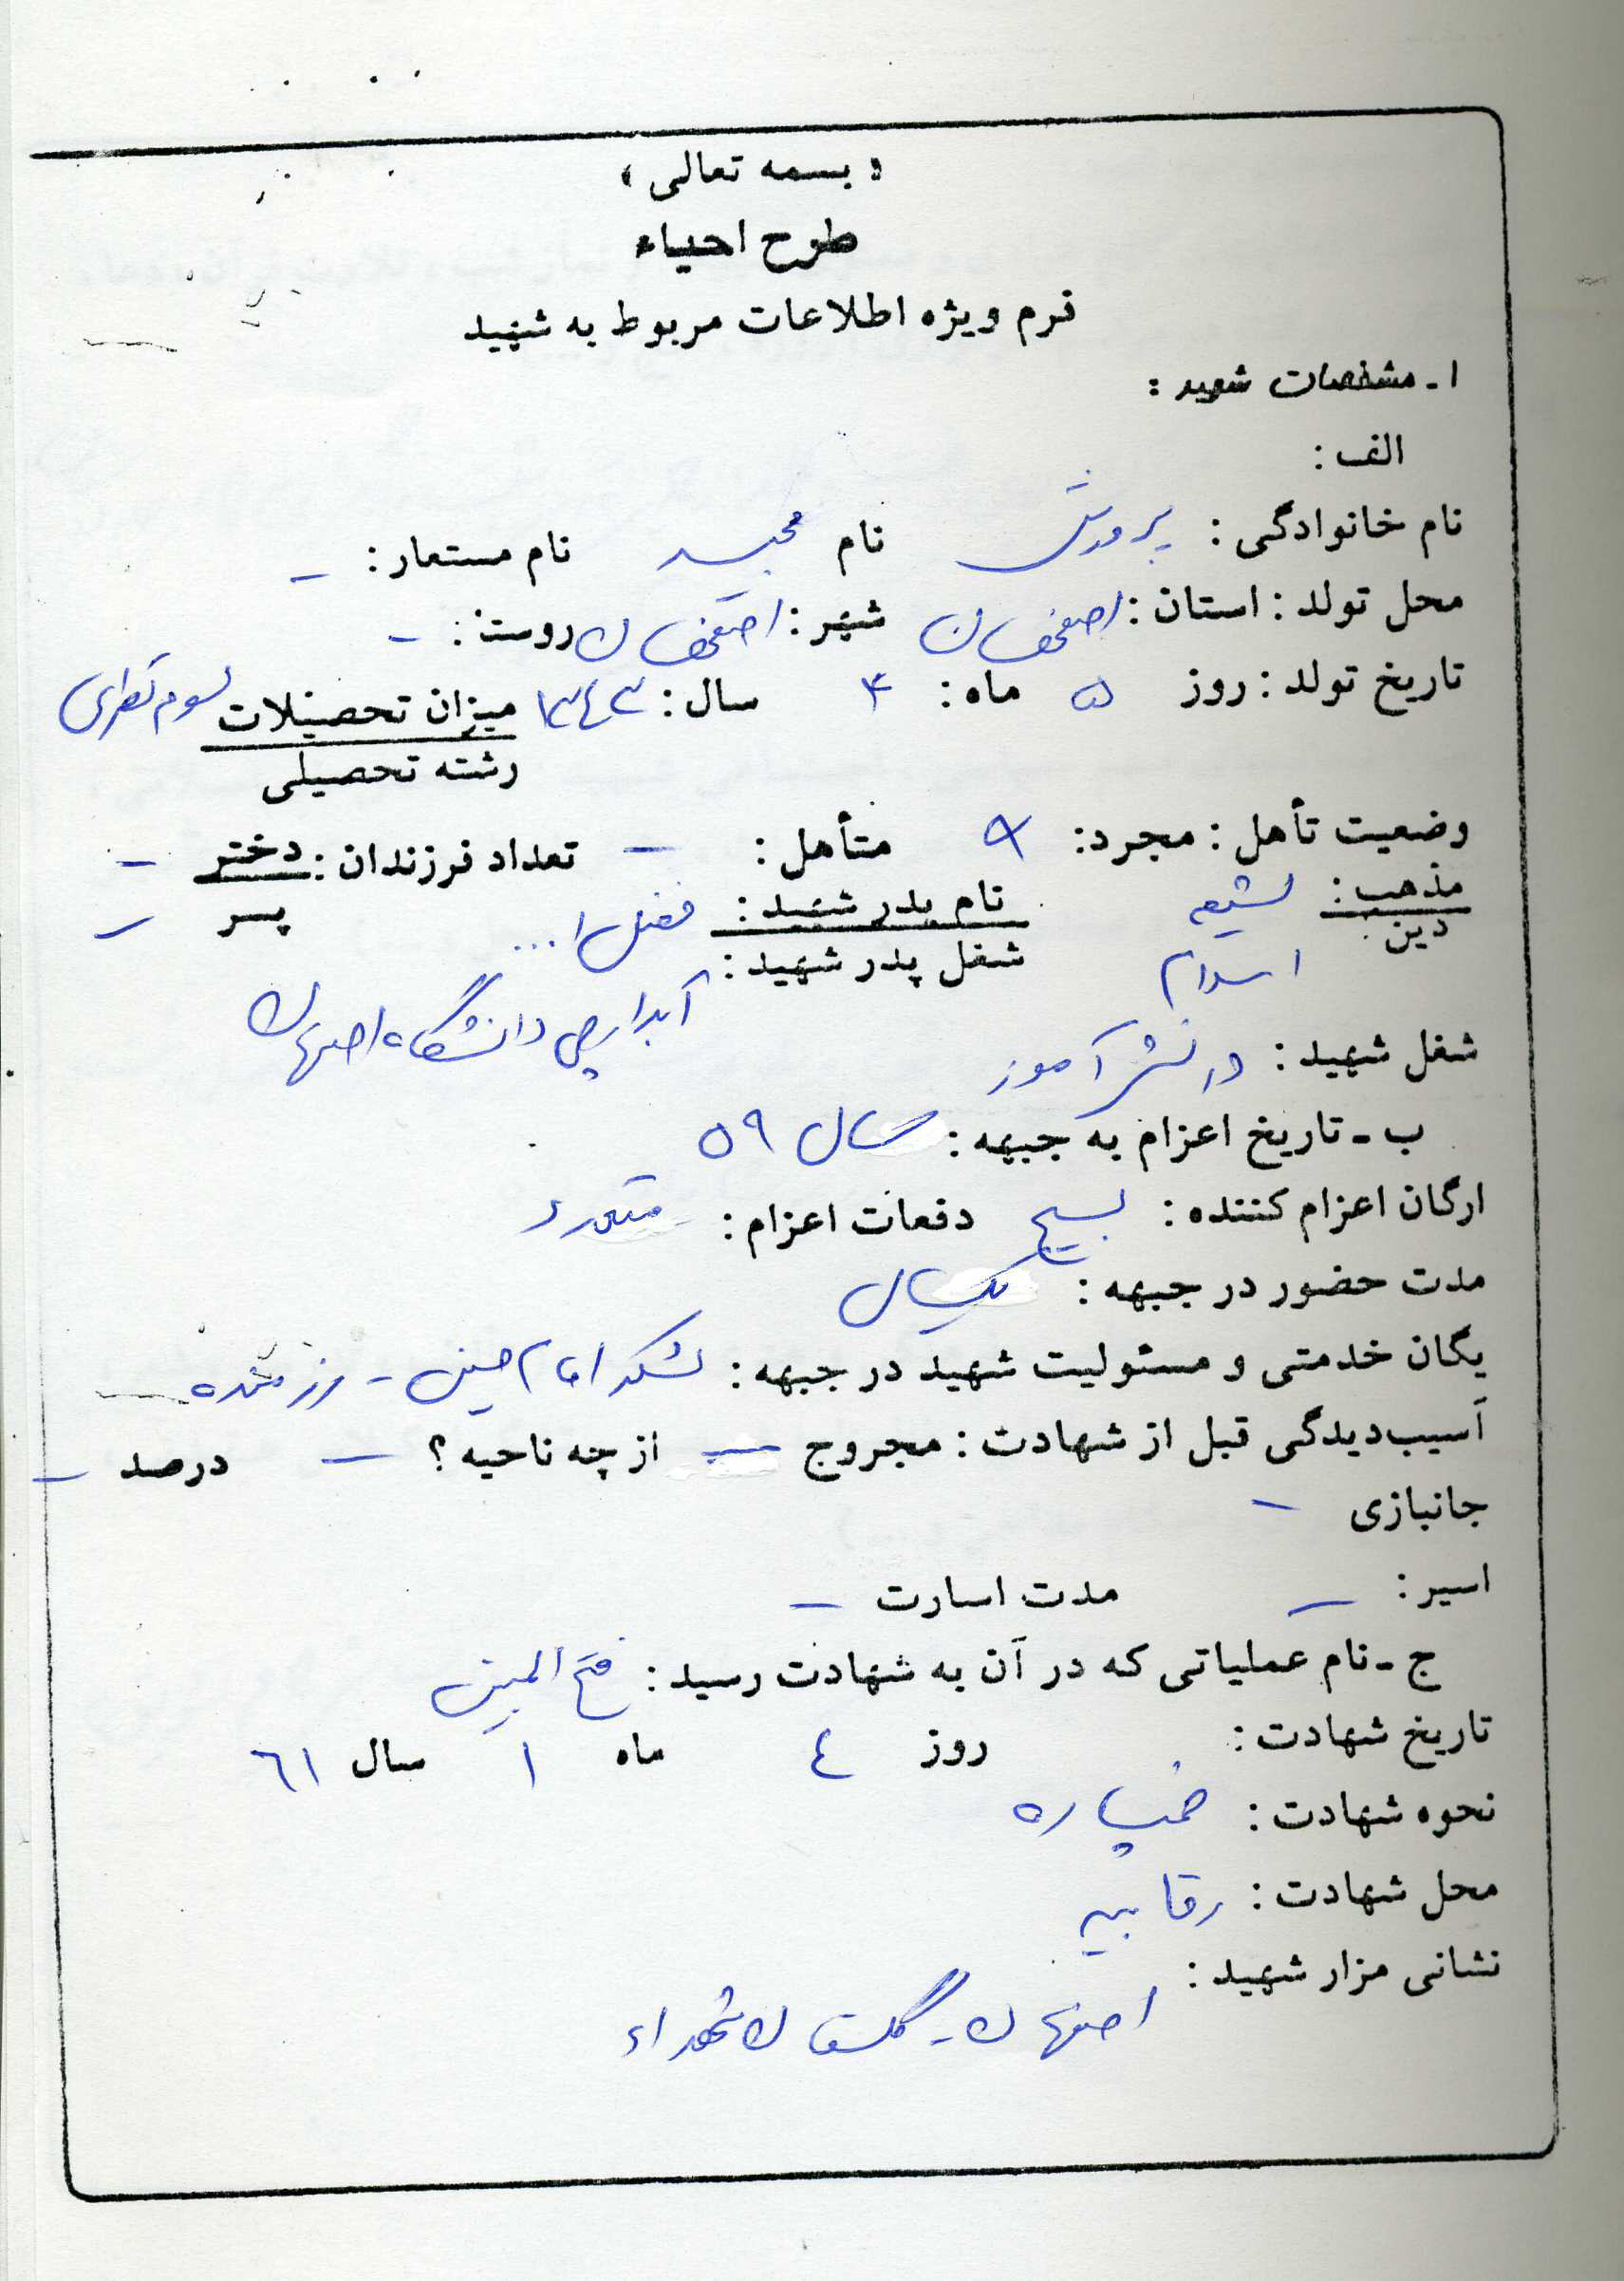 « بسمه تعالی »
طرح احیاء
فرم ویژه اطلاعات مربوط به شهید
۱ـ مشخصات شهید :
الف :
نام خانوادگی : پرورش نام مجید نام مستعار : -
محل تولد : استان : اصفهان شهر : اصفهان روستا : -
تاریخ تولد : روز ۵ ماه : ۴ سال : ۱۳۴۳ میزان تحصیلات سوم نظری
رشته تحصیلی
وضعیت تأهل : مجرد : متأهل : - تعداد فرزندان : دختر -
مذهب : شیعه نام پدر شهید : فضل ا... پسر -
دین اسلام شغل پدر شهید : آبدارچی دانشگاه اصفهان
شغل شهید : دانش آموز
ب ـ تاریخ اعزام به جبهه : سال ۵۹
ارگان اعزام کننده : بسیج دفعات اعزام : متعدد
مدت حضور در جبهه : یکسال
یگان خدمتی و مسئولیت شهید در جبهه : لشکر امام حسین - رزمنده
آسیب‌دیدگی قبل از شهادت : مجروح - از چه ناحیه ؟ - درصد -
جانبازی -
اسیر : - مدت اسارت -
ج ـ نام عملیاتی که در آن به شهادت رسید : فتح المبین
تاریخ شهادت : روز ٤ ماه ۱ سال ٦۱
نحوه شهادت : خمپاره
محل شهادت : رقابیه
نشانی مزار شهید :
اصفهان - گلستان شهداء